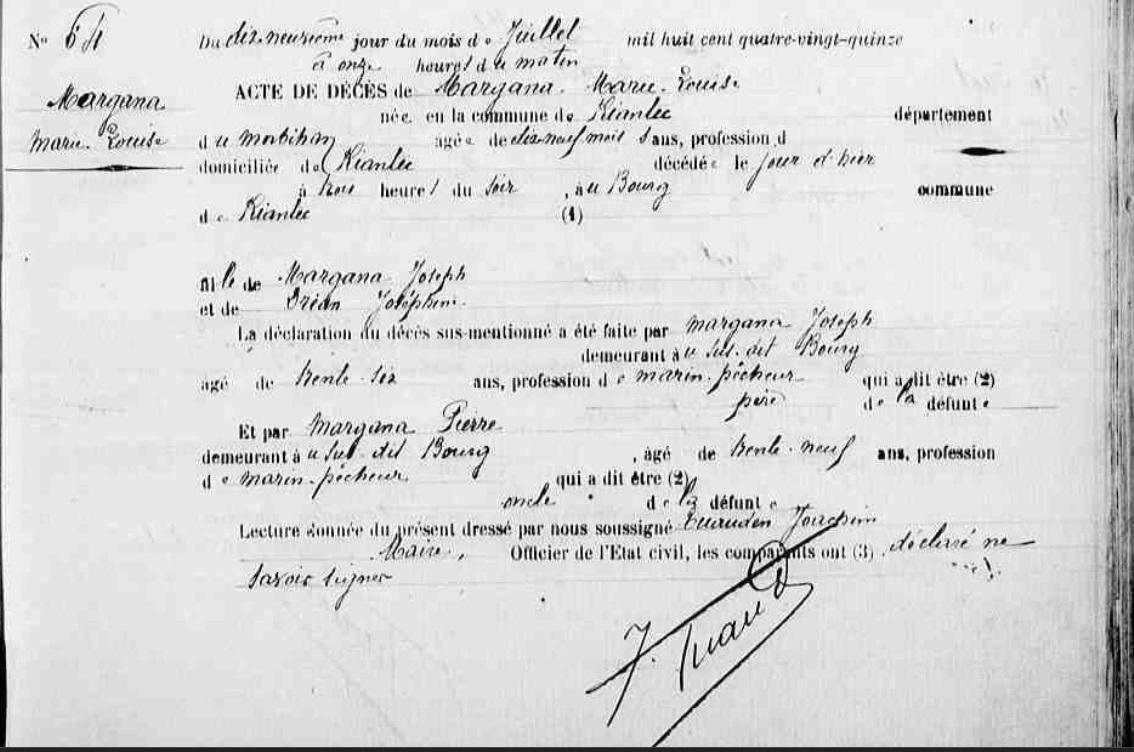 N° 64
Du dix-neuvième jour du mois de Juillet mil huit cent quatre-vingt-quinze
à onze heures du matin
Margana
Marie-Louise
ACTE DE DÉCÈS de Margana Marie-Louise
née en la commune de Riantec département
du Morbihan âgée de dix-neuf mois ans, profession d
domiciliée de Riantec décédée le jour d'hier
à trois heures du soir, au Bourg commune
de Riantec (1)
fille de Margana Joseph
et de Dréan Joséphine
La déclaration du décès sus-mentionné a été faite par Margana Joseph
demeurant au sus-dit Bourg
âgé de trente-six ans, profession de marin-pêcheur qui a dit être (2)
père de la défunte
Et par Margana Pierre
demeurant au sus-dit Bourg, âgé de trente-neuf ans, profession
de marin-pêcheur qui a dit être (2)
oncle de la défunte
Lecture donnée du présent dressé par nous soussigné Joachim
Maire, Officier de l'Etat civil, les comparants ont (3) déclaré ne
savoir signer